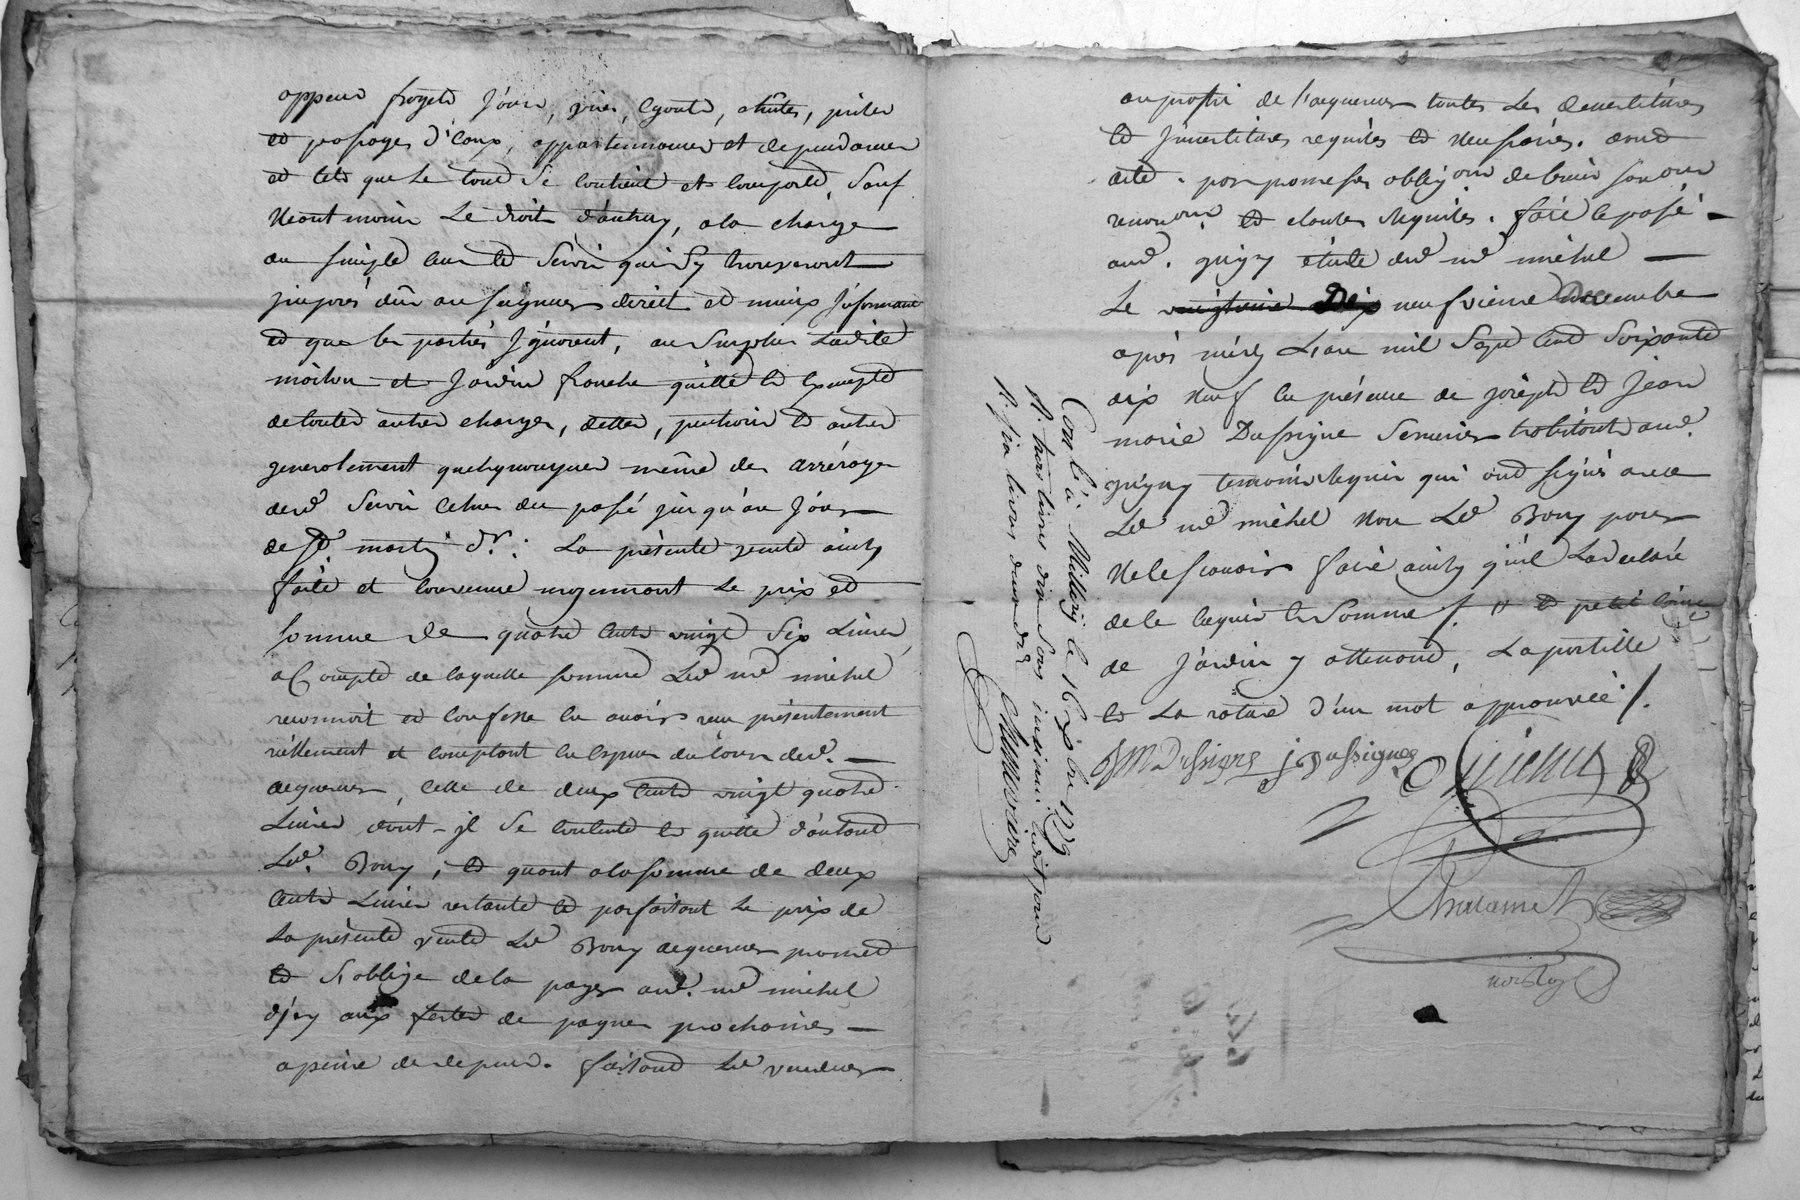 et passages d'eaux, appartenances et dependances
et tels que le tout se contient et comporte, sauf
neantmoins le droit d'autruy, a la charge
au simple cens et servis qui s'y trouveront
du au seigneur direct et
et que les parties ignorent, au surplus ladite
maison et jardin franche quitte et exempte
de toutes autres charges, dettes, pensions et autres
generalement quelquonques même des arrérages
dud servis celuy du passé jusqu'au jour
de St martin dr: La présente vente ainsy
faite et convenue moyennant le prix et
somme de quatre cents vingt six Livres
a Compte de laquelle somme Led me michel
reconnoit et confesse en avoir reçu présentement
réellement et comptant en espèces du cours dud. —
acquereur, celle de deux cents vingt quatre
Livres dont il se contente et quitte d'autant
Led. Bony, et quant a la somme de deux
cents Livres restante et parfaitant le prix de
la présente vente Led Bony acquereur promet
et s'oblige de la payer aud. me michel
d'jcy aux festes de paques prochaines —
a peine de depens. faisant Led vendeur
au profit de l'acquereur toutes les devestitures
et jnvestitures requises et necessaires. dont
acte. par promesses obligons de biens
renonons et clauses requises. fait et passé —
aud. grigny étude dud me michel —
Le Dix neufvieme decembre
après midy L'an mil sept cent soixante
dix neuf en présence de joseph et jean
marie Dussigne habitant aud.
grigny temoins requis qui ont signé avec
Led me michel non Led Bony pour
ne le scavoir faire ainsy qu'il L'a declaré
de ce enquis et sommé /. et petit
de jardin y attenant, L'apostille
et la rature d'un mot approuvée /.
JM Dussigne j Dussigne
Chalamel
Conlé à Millery le 16 xbre 1779
R. trois livres dix sous